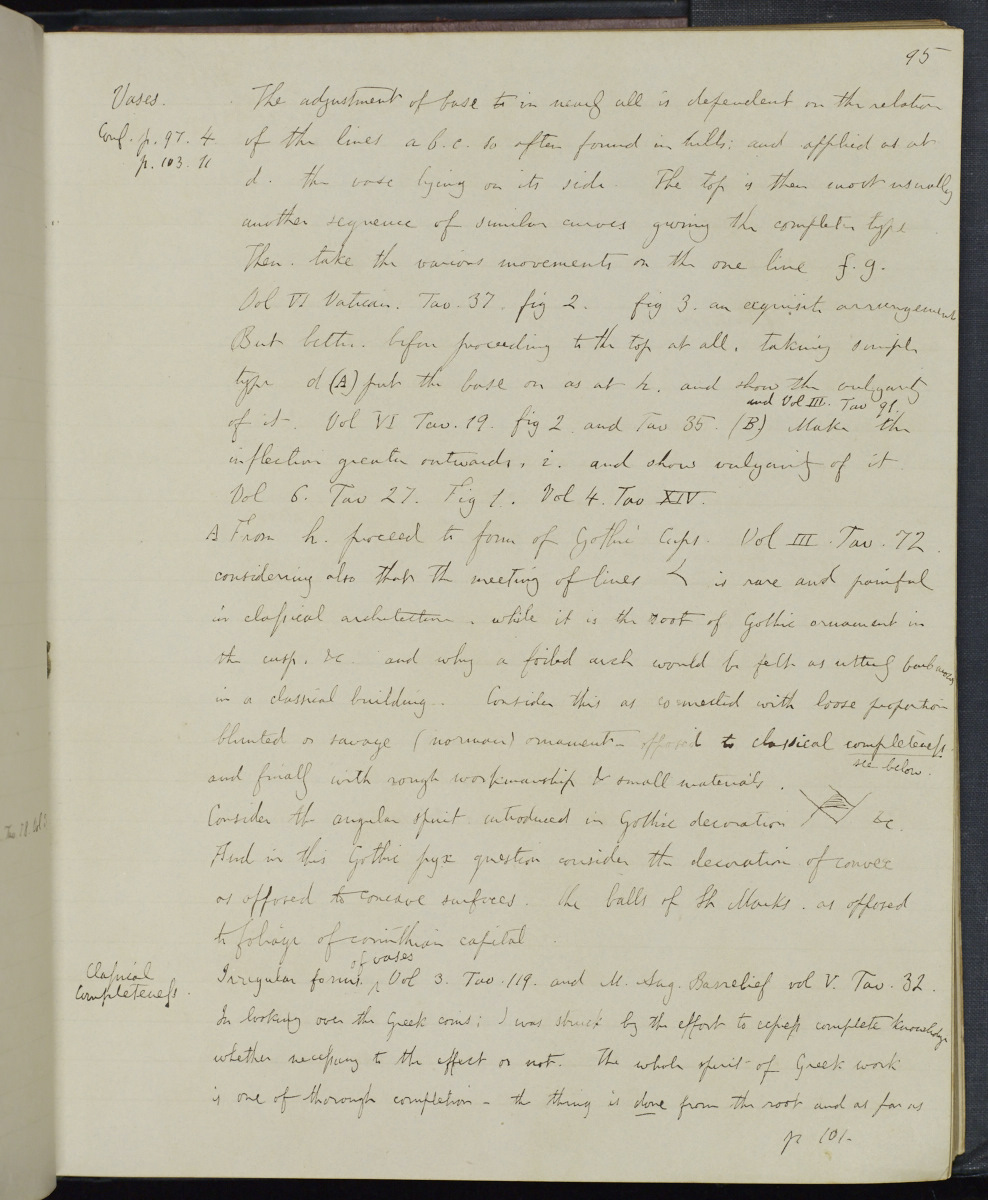 95
Vases.
Conf. p. 97. 4.
p. 103. 11
The adjustment of base to in nearly all is dependent on the relation
of the lines a b. c. so often found in hills; and applied as at
d. the vase lying on its side. The top is then most usually
another sequence of similar curves giving the complete type
Then. take the various movements on the one line f. g.
Vol VI Vatican. Tav. 37. fig 2. fig 3. an exquisite arrangement
But better. before proceeding to the top at all, taking simple
type d (A) put the base on as at h. and show the vulgarity
and Vol III. Tav 91.
of it. Vol VI Tav. 19. fig 2 and Tav 35. (B) Make the
inflection greater outwards, i. and show vulgarity of it
Vol 6. Tav 27. Fig 1. Vol 4. Tav XIV.
A From h. proceed to form of Gothic Cups. Vol III. Tav. 72.
considering also that the meeting of lines < is rare and painful
in classical architecture, while it is the root of Gothic ornament in
the cusp, &c. and why a foiled arch would be felt as utterly barbarous
in a classical building. Consider this as connected with loose proportion
blunted or savage (norman) ornament - opposed to classical completeness.
see below.
and finally with rough workmanship & small materials.
Consider the angular spirit introduced in Gothic decoration &c.
And in this Gothic pyx question consider the decoration of convex
as opposed to concave surfaces. the balls of St Marks. as opposed
to foliage of corinthian capital.
Classical
Completeness.
of vases
Irregular forms. Vol 3. Tav. 119. and M. Aug. Basrelief vol V. Tav. 32.
In looking over the Greek coins; I was struck by the effort to express complete knowledge
whether necessary to the effect or not. The whole spirit of Greek work
is one of thorough completion - the thing is done from the root and as far as
p 101.